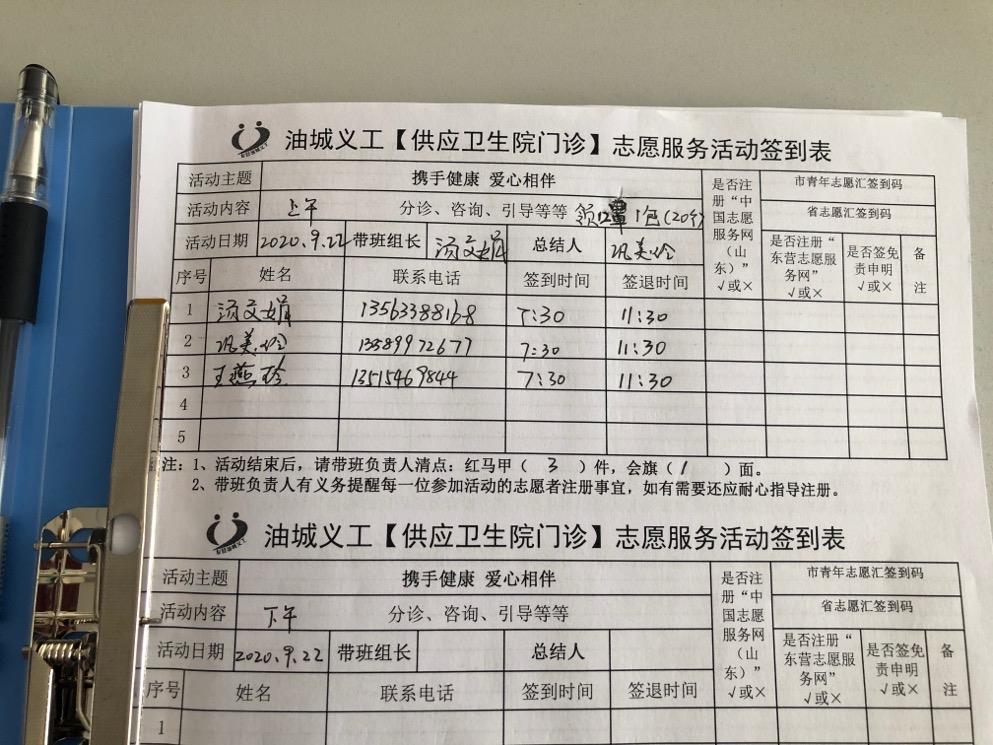 油城义工【供应卫生院门诊】志愿服务活动签到表
活动主题 携手健康 爱心相伴 是否注册“中国志愿服务网（山东）”√或× 市青年志愿汇签到码
活动内容 上午 分诊、咨询、引导等等 领口罩1包(20个) 省志愿汇签到码
活动日期 2020.9.22 带班组长 汤文娟 总结人 巩美玲 是否注册“东营志愿服务网”√或× 是否签免责申明√或× 备注
序号 姓名 联系电话 签到时间 签退时间
1 汤文娟 13563388168 7:30 11:30
2 巩美玲 13589972677 7:30 11:30
3 王燕玲 13515469844 7:30 11:30
4
5
注：1、活动结束后，请带班负责人清点：红马甲（ 3 ）件，会旗（ 1 ）面。
2、带班负责人有义务提醒每一位参加活动的志愿者注册事宜，如有需要还应耐心指导注册。
油城义工【供应卫生院门诊】志愿服务活动签到表
活动主题 携手健康 爱心相伴 是否注册“中国志愿服务网（山东）”√或× 市青年志愿汇签到码
活动内容 下午 分诊、咨询、引导等等 省志愿汇签到码
活动日期 2020.9.22 带班组长 总结人 是否注册“东营志愿服务网”√或× 是否签免责申明√或× 备注
序号 姓名 联系电话 签到时间 签退时间
1